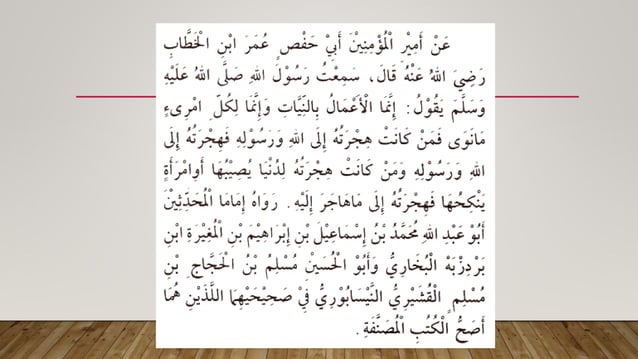 عَنْ أَمِيْرِ الْمُؤْمِنِيْنَ أَبِيْ حَفْصٍ عُمَرَ ابْنِ الْخَطَّابِ
رَضِيَ اللهُ عَنْهُ قَالَ، سَمِعْتُ رَسُوْلَ اللهِ صَلَّى اللهُ عَلَيْهِ
وَسَلَّمَ يَقُوْلُ: إِنَّمَا الْأَعْمَالُ بِالنِّيَّاتِ وَإِنَّمَا لِكُلِّ امْرِىءٍ
مَانَوَى فَمَنْ كَانَتْ هِجْرَتُهُ إِلَى اللهِ وَرَسُوْلِهِ فَهِجْرَتُهُ إِلَى
اللهِ وَرَسُوْلِهِ وَمَنْ كَانَتْ هِجْرَتُهُ لِدُنْيَا يُصِيْبُهَا أَوِامْرَأَةٍ
يَنْكِحُهَا فَهِجْرَتُهُ إِلَى مَاهَاجَرَ إِلَيْهِ. رَوَاهُ إِمَامَا الْمُحَدِّثِيْنَ
أَبُوْ عَبْدِ اللهِ مُحَمَّدُ بْنُ إِسْمَاعِيْلَ بْنِ إِبْرَاهِيْمَ بْنِ الْمُغِيْرَةِ ابْنِ
بَرْدِزْبَهْ الْبُخَارِيُّ وَأَبُوْ الْحُسَيْنِ مُسْلِمُ بْنُ الْحَجَّاجِ بْنِ
مُسْلِمٍ الْقُشَيْرِيُّ النَّيْسَابُوْرِيُّ فِيْ صَحِيْحَيْهِمَا اللَّذَيْنِ هُمَا
أَصَحُّ الْكُتُبِ الْمُصَنَّفَةِ.